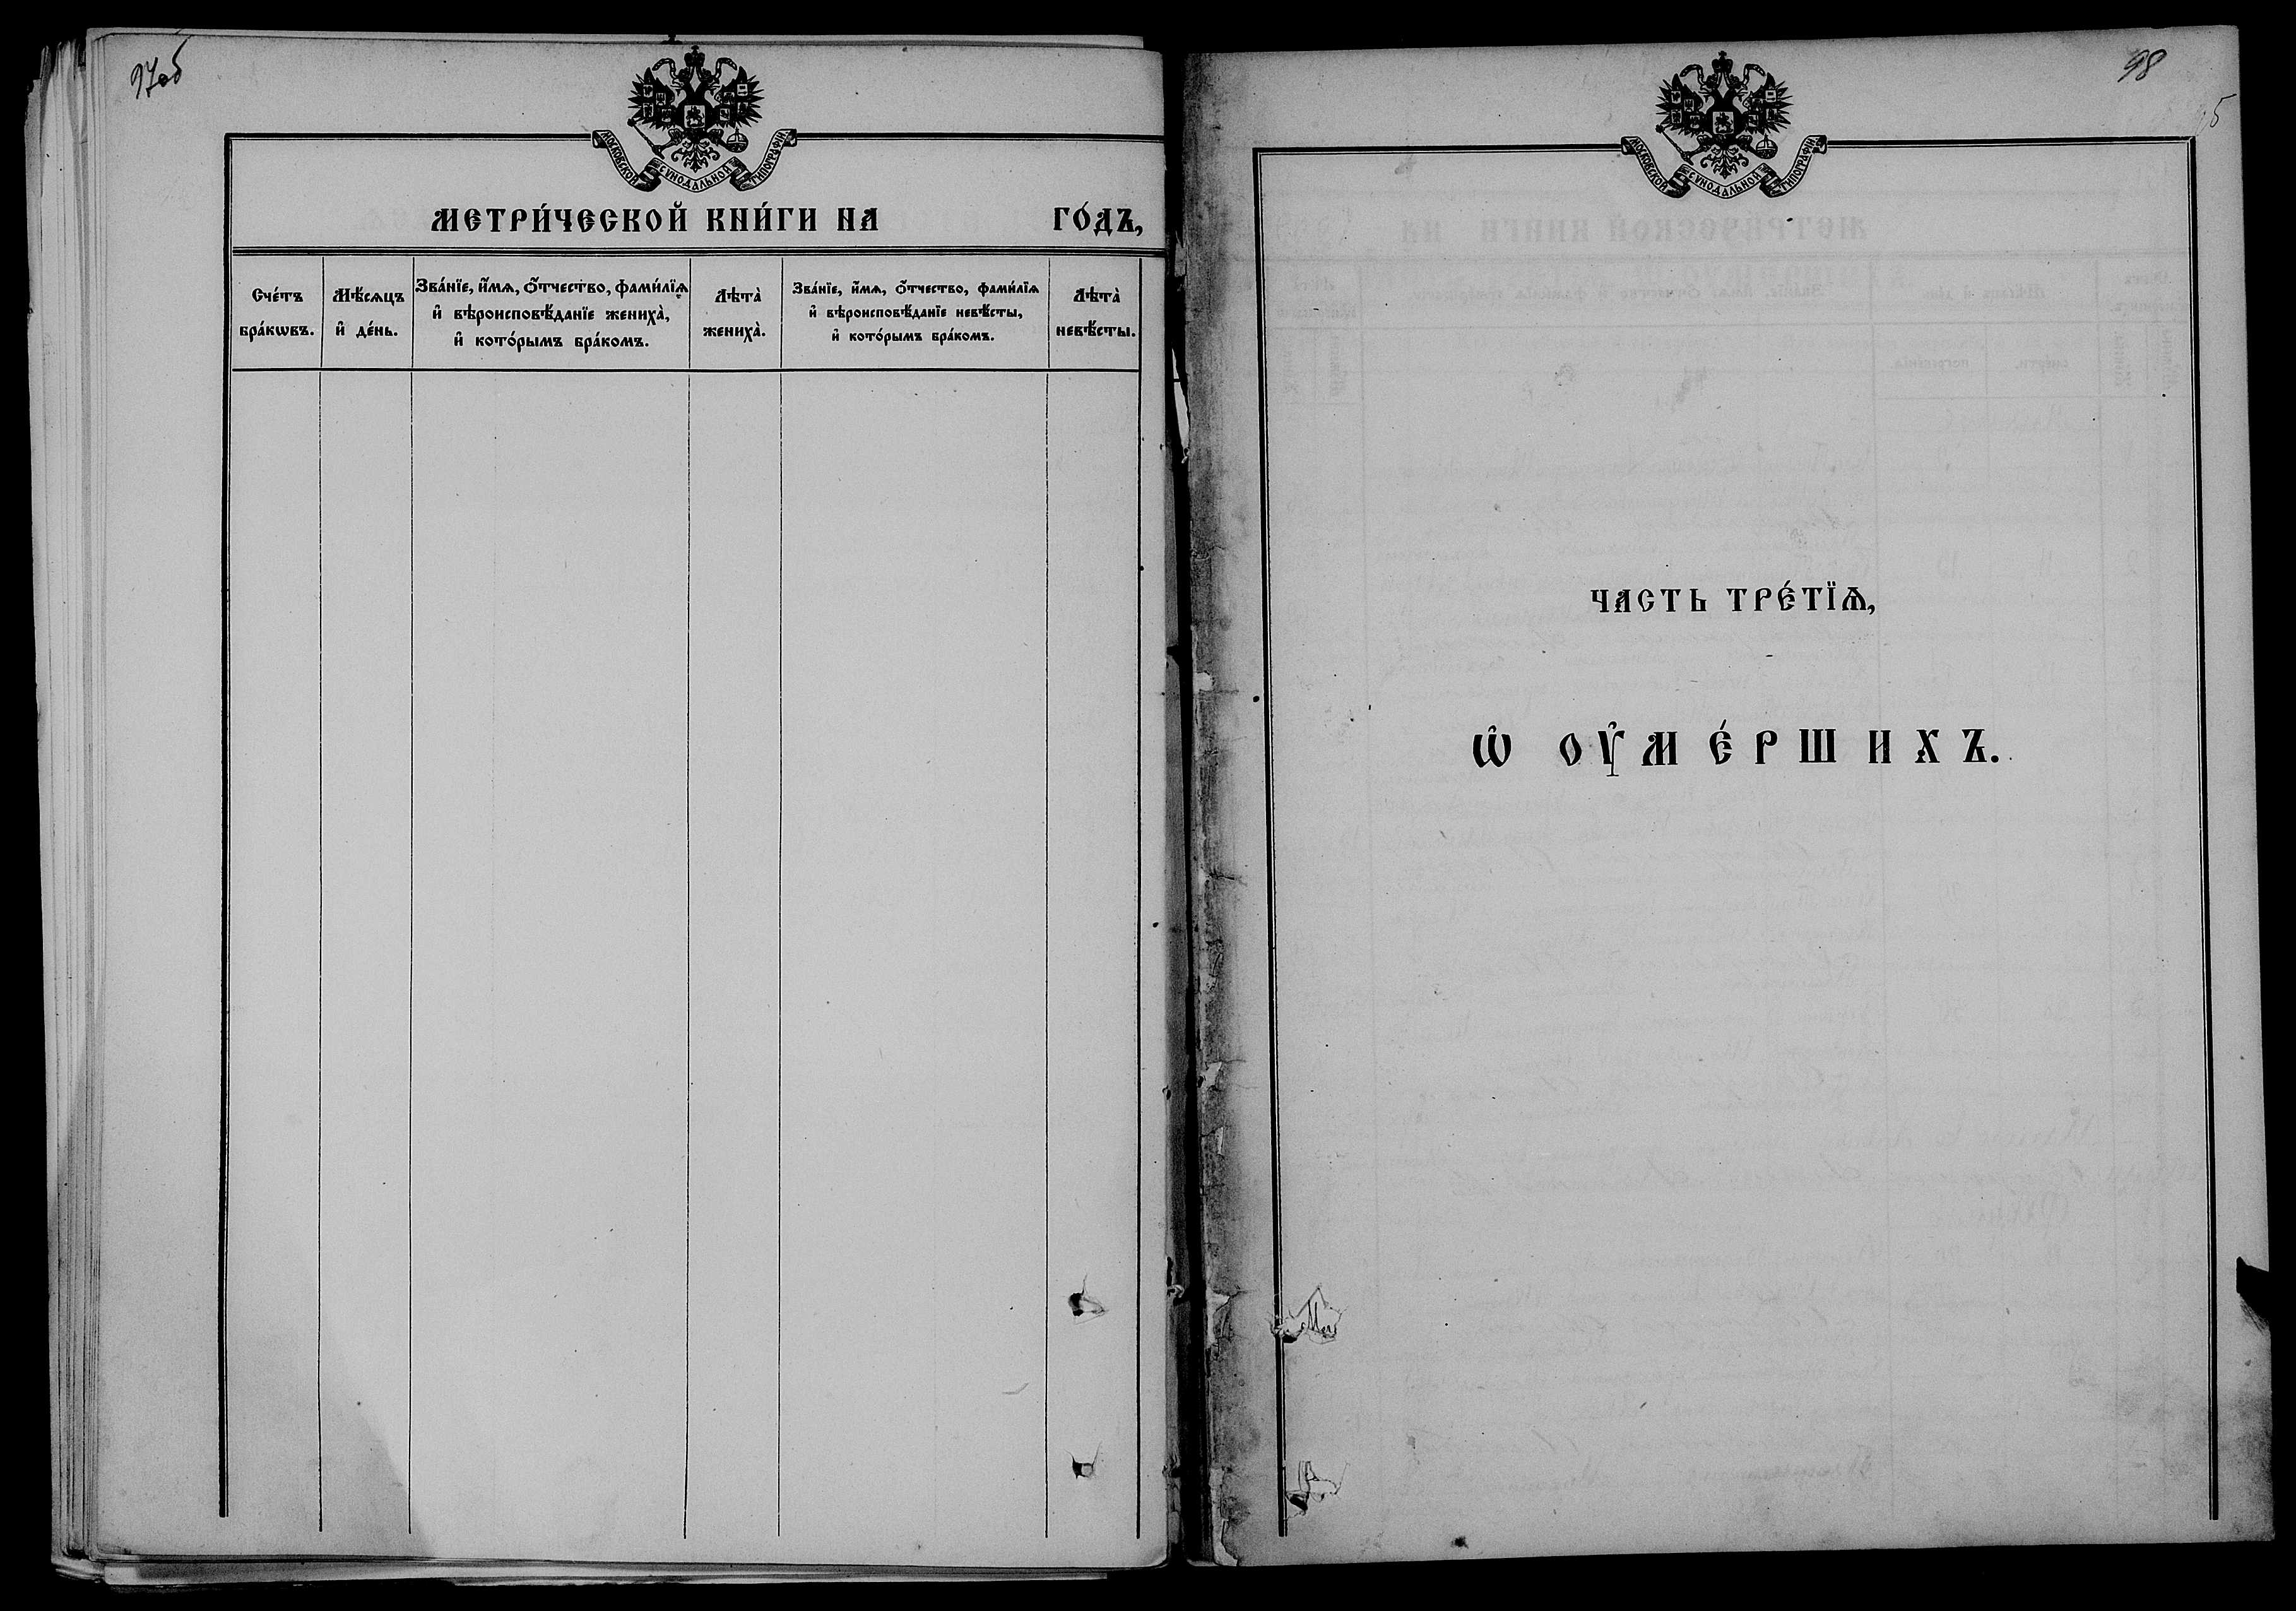 97об
МОСКОВСКОЙ СѴНОДАЛЬНОЙ ТИПОГРАФІИ
МЕТРИ́ЧЕСКОЙ КНИ́ГИ НА ГО́ДЪ,
Сче́тъ
бра́кѡвъ.
Мѣ́сѧцъ
и҆ де́нь.
Зва́нїе, и҆́мѧ, ѻ҆́тчество, фами́лїѧ
и҆ вѣроисповѣ́данїе жениха̀,
и҆ кото́рымъ бра́комъ.
Лѣта̀
жениха̀.
Зва́нїе, и҆́мѧ, ѻ҆́тчество, фами́лїѧ
и҆ вѣроисповѣ́данїе невѣ́сты,
и҆ кото́рымъ бра́комъ.
Лѣта̀
невѣ́сты.
98
МОСКОВСКОЙ СѴНОДАЛЬНОЙ ТИПОГРАФІИ
ЧАСТЬ ТРЕ́ТЇѦ,
Ѡ҆ ОУ҆МЕ́РШИХЪ.